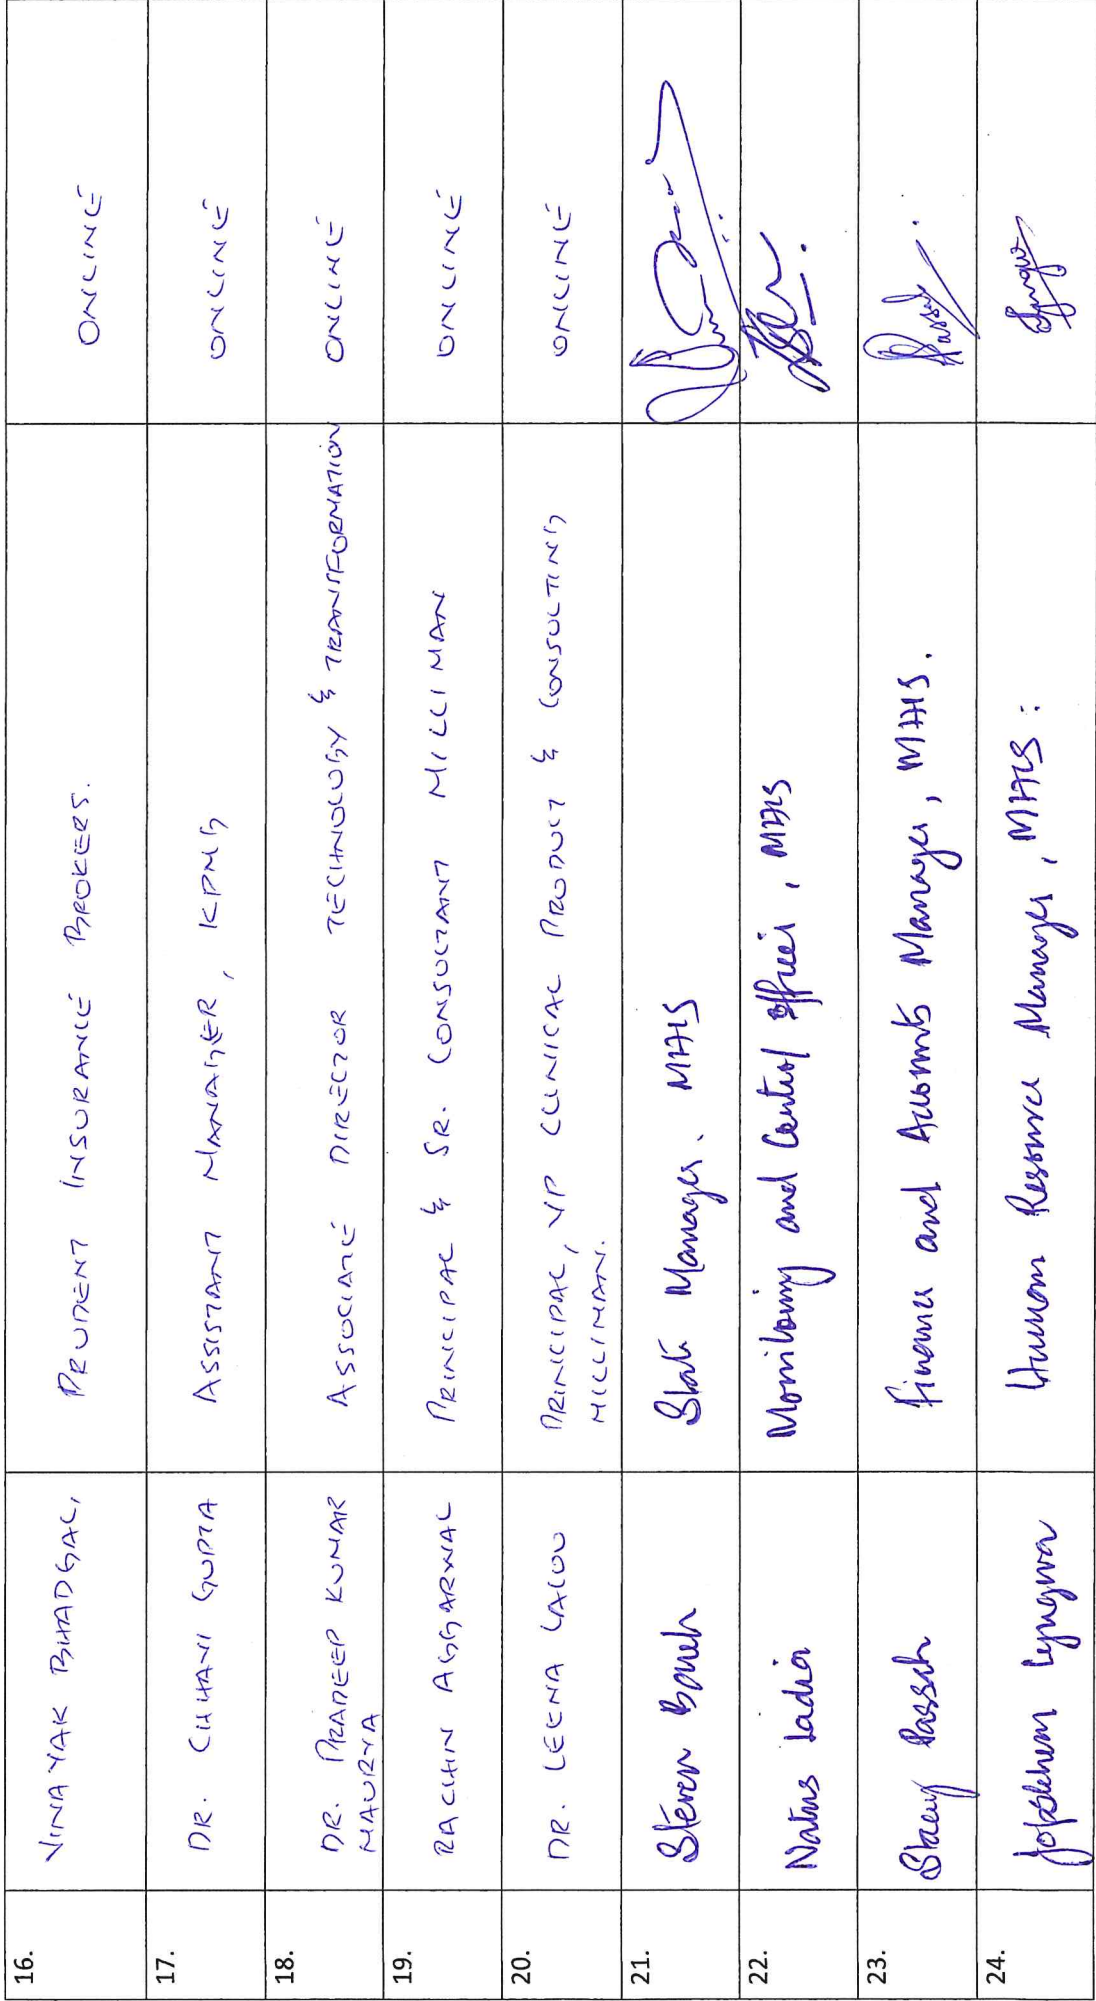 16. VINAYAK BHADGAL, PRUDENT INSURANCE BROKERS. ONLINE
17. DR. CHHAVI GUPTA ASSISTANT MANAGER, KPMG ONLINE
18. DR. PRADEEP KUMAR ASSOCIATE DIRECTOR TECHNOLOGY & TRANSFORMATION ONLINE
MAURYA
19. RACHIN AGGARWAL PRINCIPAL & SR. CONSULTANT MILLIMAN ONLINE
20. DR. LEENA LALOO PRINCIPAL, VP CLINICAL PRODUCT & CONSULTING ONLINE
MILLIMAN.
21. Steven State Manager. MHIS
22. Ladia Monitoring and Control Officer, MHIS
23. Passah Finance and Accounts Manager, MHIS.
24. Lyngwa Human Resource Manager, MHIS.